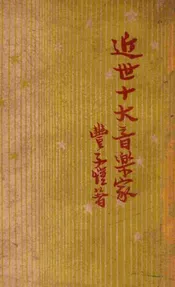 近世十大音樂家
豐子愷著